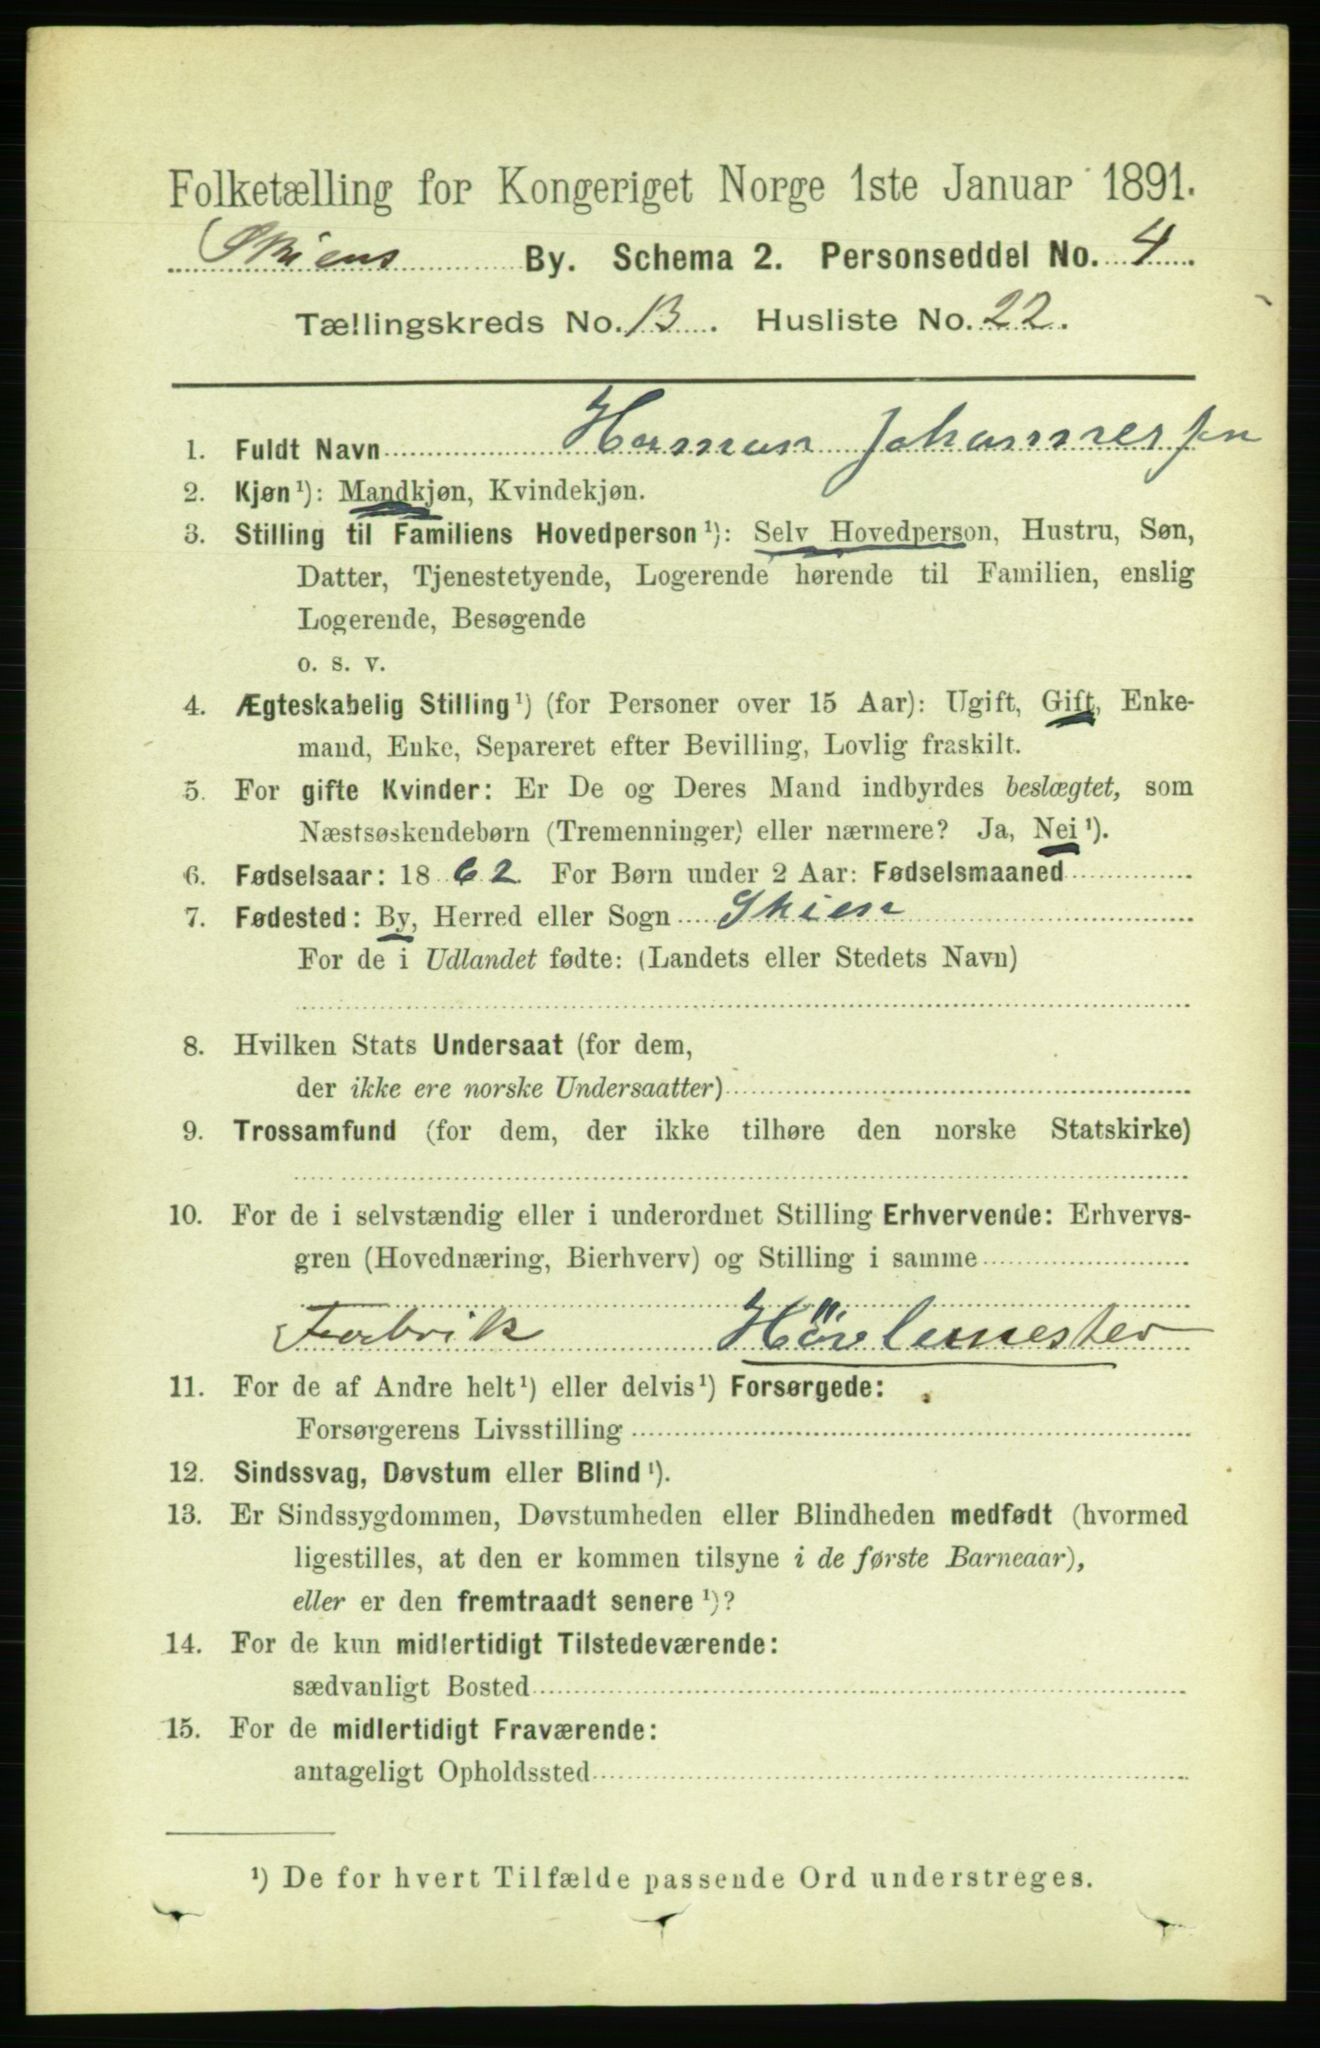 Folketælling for Kongeriget Norge 1ste Januar 1891.
Skiens By. Schema 2. Personseddel No. 4
Tællingskreds No. 13. Husliste No. 22.
1. Fuldt Navn Herman Johannessen
2. Kjøn¹): Mandkjøn, Kvindekjøn.
3. Stilling til Familiens Hovedperson¹): Selv Hovedperson, Hustru, Søn,
Datter, Tjenestetyende, Logerende hørende til Familien, enslig
Logerende, Besøgende
o. s. v.
4. Ægteskabelig Stilling¹) (for Personer over 15 Aar): Ugift, Gift, Enke-
mand, Enke, Separeret efter Bevilling, Lovlig fraskilt.
5. For gifte Kvinder: Er De og Deres Mand indbyrdes beslægtet, som
Næstsøskendebørn (Tremenninger) eller nærmere? Ja, Nei¹).
6. Fødselsaar: 1862 For Børn under 2 Aar: Fødselsmaaned
7. Fødested: By, Herred eller Sogn Skien
For de i Udlandet fødte: (Landets eller Stedets Navn)
8. Hvilken Stats Undersaat (for dem,
der ikke ere norske Undersaatter)
9. Trossamfund (for dem, der ikke tilhøre den norske Statskirke)
10. For de i selvstændig eller i underordnet Stilling Erhvervende: Erhvervs-
gren (Hovednæring, Bierhverv) og Stilling i samme
Fabrik Hövlemester
11. For de af Andre helt¹) eller delvis¹) Forsørgede:
Forsørgerens Livsstilling
12. Sindssvag, Døvstum eller Blind¹).
13. Er Sindssygdommen, Døvstumheden eller Blindheden medfødt (hvormed
ligestilles, at den er kommen tilsyne i de første Barneaar),
eller er den fremtraadt senere¹)?
14. For de kun midlertidigt Tilstedeværende:
sædvanligt Bosted
15. For de midlertidigt Fraværende:
antageligt Opholdssted
¹) De for hvert Tilfælde passende Ord understreges.